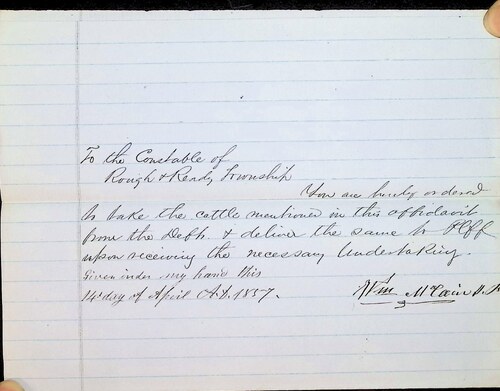 To the Constable of
Rough & Ready Township
You are hereby ordered
to take the cattle mentioned in this affidavit
from the Deft. & deliver the same to Plff
upon receiving the necessary Undertaking.
Given under my hand this
14th day of April A.D. 1857.
Wm McCain J.P